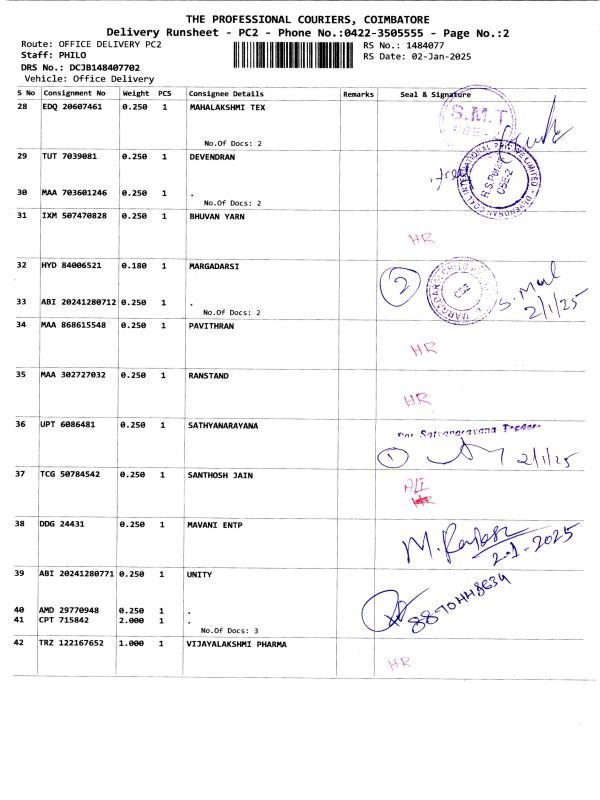 THE PROFESSIONAL COURIERS, COIMBATORE
Delivery Runsheet - PC2 - Phone No.:0422-3505555 - Page No.:2
Route: OFFICE DELIVERY PC2 RS No.: 1484077
Staff: PHILO RS Date: 02-Jan-2025
DRS No.: DCJB148407702
Vehicle: Office Delivery
S No Consignment No Weight PCS Consignee Details Remarks Seal & Signature
28 EDQ 20607461 0.250 1 MAHALAKSHMI TEX
S.M.T
No.Of Docs: 2
29 TUT 7039081 0.250 1 DEVENDRAN
30 MAA 703601246 0.250 1 .
No.Of Docs: 2
31 IXM 507470828 0.250 1 BHUVAN YARN
HR
32 HYD 84006521 0.180 1 MARGADARSI
2
33 ABI 20241280712 0.250 1 .
2/1/25
No.Of Docs: 2
34 MAA 868615548 0.250 1 PAVITHRAN
HR
35 MAA 302727032 0.250 1 RANSTAND
HR
36 UPT 6086481 0.250 1 SATHYANARAYANA
For Satyanarayana Traders
1 2/1/25
37 TCG 50784542 0.250 1 SANTHOSH JAIN
HR
38 DDG 24431 0.250 1 MAVANI ENTP
2-1-2025
39 ABI 20241280771 0.250 1 UNITY
40 AMD 29770948 0.250 1 .
41 CPT 715842 2.000 1 .
No.Of Docs: 3
42 TRZ 122167652 1.000 1 VIJAYALAKSHMI PHARMA
HR